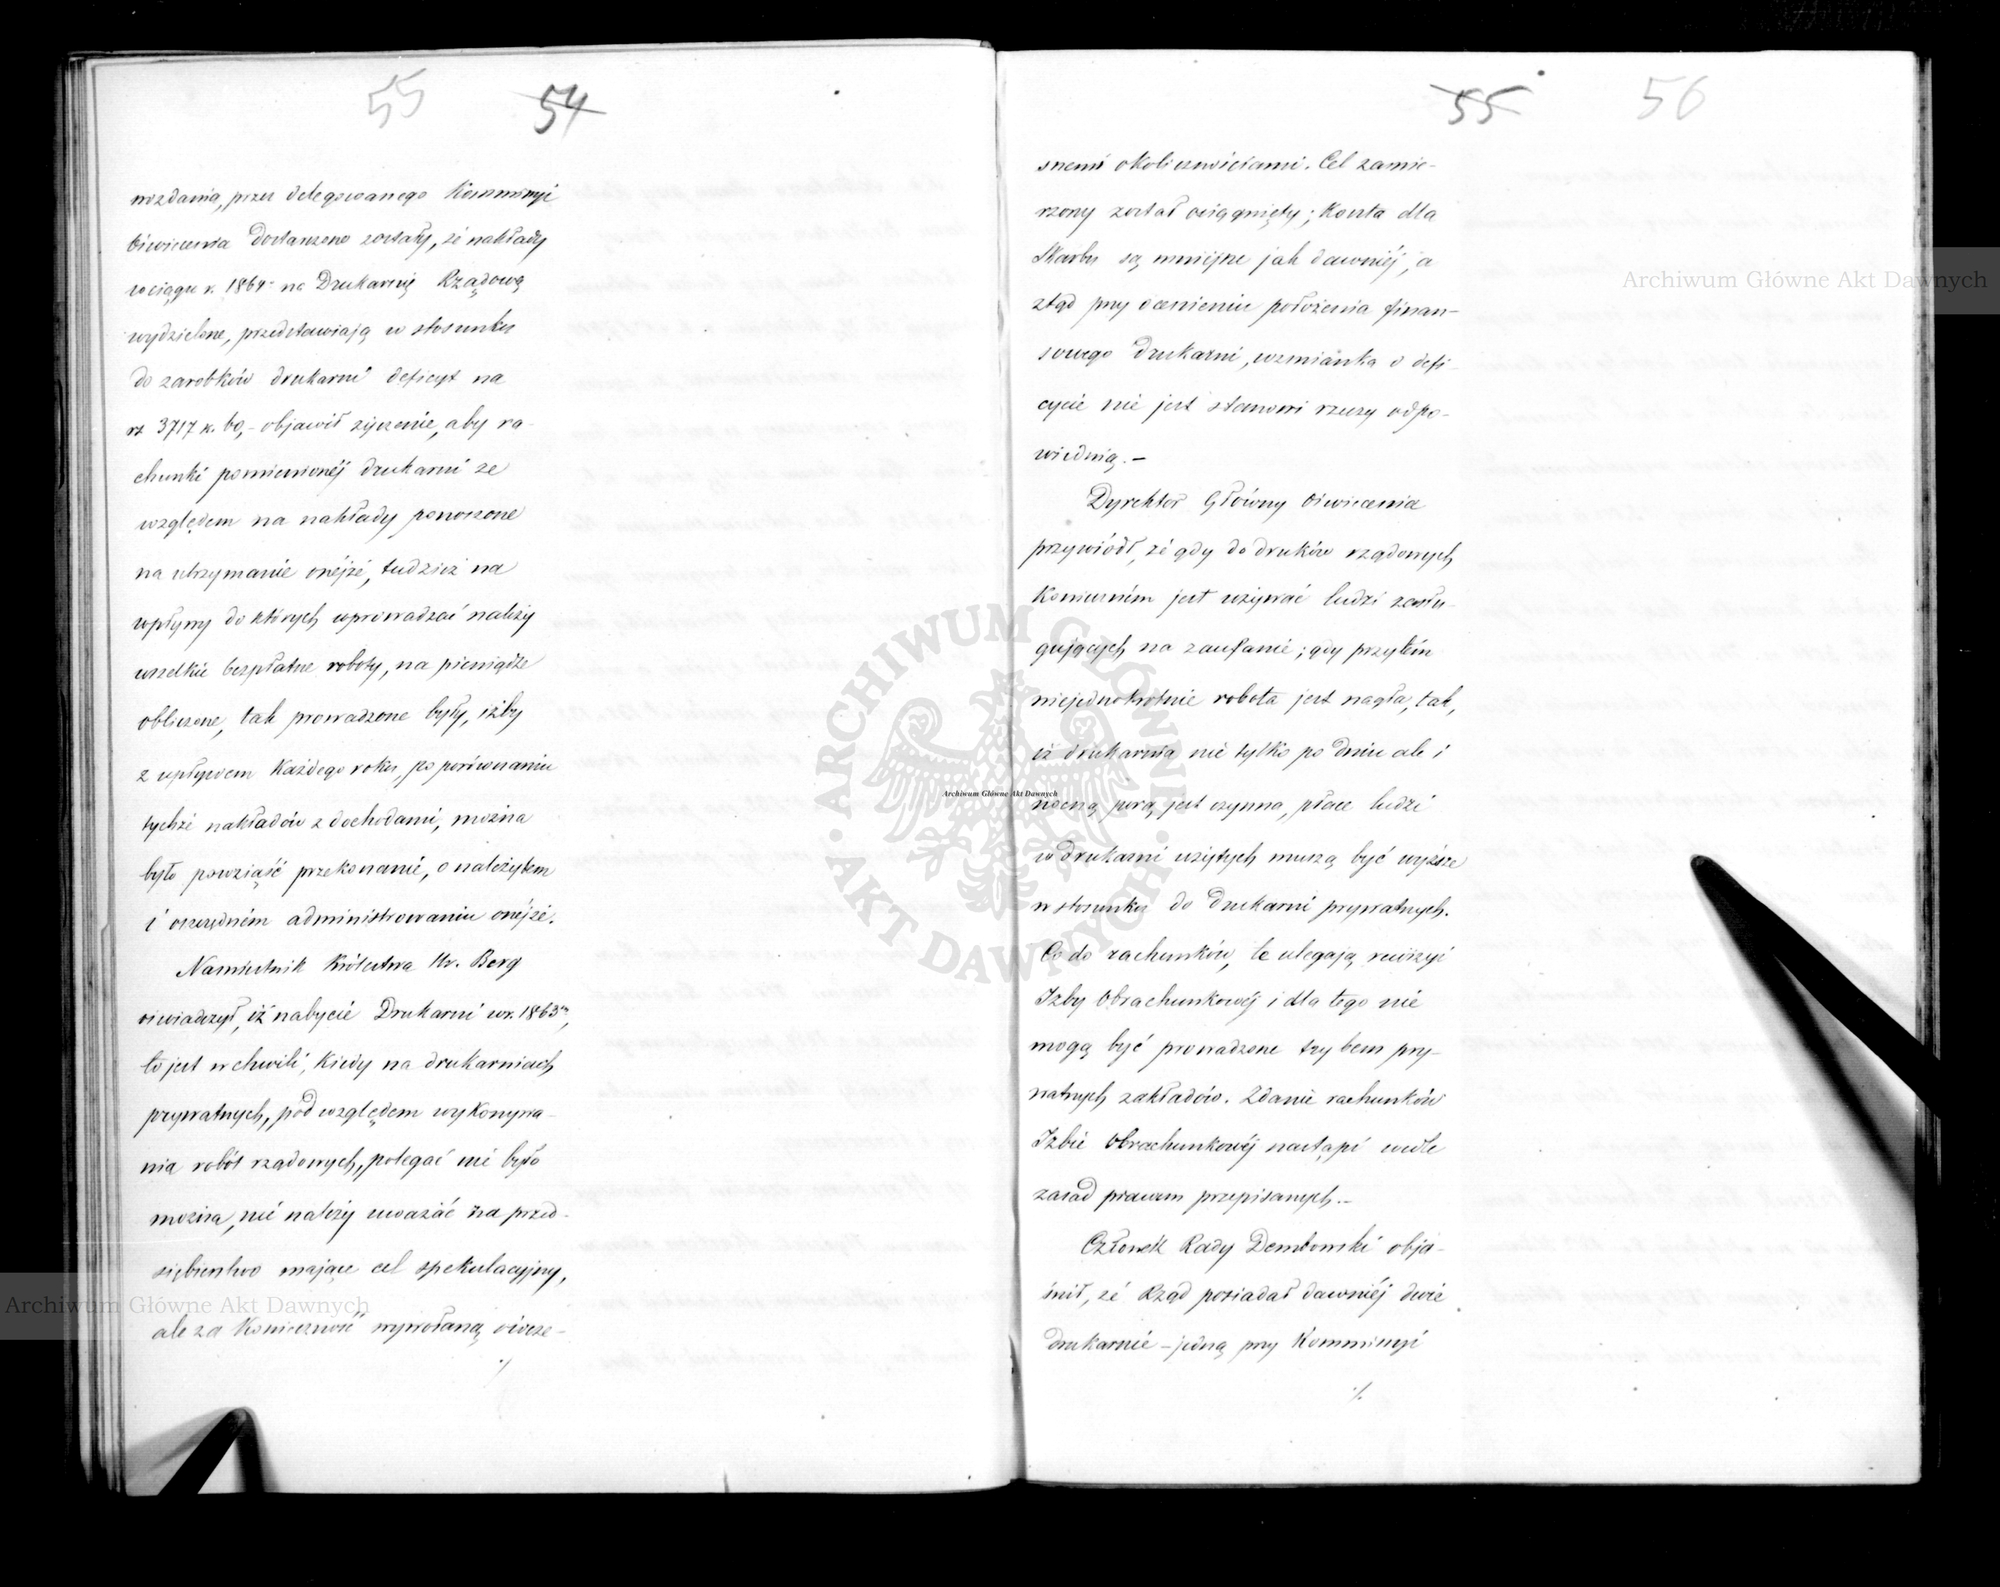 55 54
wozdania, przez delegowanego Kommissyi
Oświecenia dostarczone zostały, że nakłady
w ciągu r. 1864 na Drukarnię Rządową
wydzielone, przedstawiają w stosunku
do zarobków drukarni deficyt na
rs 3717 k. 60,- objawił życzenie, aby ra-
chunki pomienionéj drukarni ze
względem na nakłady ponoszone
na utrzymanie onéjże, tudzież na
wpływy do których wprowadzać należy
wszelkie bezpłatne roboty, na pieniądze
obliczone, tak prowadzone były, iżby
z upływem każdego roku, po porównaniu
tychże nakładów z dochodami, można
było powziąść przekonanie, o należytem
i oszczędném administrowaniu onéjże.
Namiestnik Królestwa Hr. Berg
oświadczył, iż nabycie Drukarni w r. 1863m,
to jest w chwili, kiedy na drukarniach
prywatnych, pod względem wykonywa-
nia robót rządowych, polegać nie było
można, nie należy uważać za przed-
siębierstwo mające cel spekulacyjny,
ale za konieczność wywołaną ówcze-
./.
55 56
snemi okolicznościami. Cel zamie-
rzony został osiągnięty; koszta dla
Skarbu są mniejsze jak dawniéj, a
ztąd przy ocenieniu położenia finan-
sowego drukarni, wzmianka o defi-
cycie nie jest stanowi rzeczy odpo-
wiednią.-
Dyrektor Główny Oświecenia
przywiódł, że gdy do druków rządowych
koniecznem jest używać ludzi zasłu-
gujących na zaufanie; gdy przytém
niejednokrotnie robota jest nagła, tak,
iż drukarnia nie tylko po dniu ale i
nocną porą jest czynna, płace ludzi
w drukarni użytych muszą być wyższe
w stosunku do drukarni prywatnych.
Co do rachunków, te ulegają rewizyi
Izby Obrachunkowéj i dla tego nie
mogą być prowadzone trybem pry-
watnych zakładów. Zdanie rachunków
Izbie Obrachunkowéj nastąpi wedle
zasad prawem przepisanych.-
Członek Rady Dembowski obja-
śnił, że Rząd posiadał dawniéj dwie
drukarnie - jedną przy Kommissyi
./.
Archiwum Główne Akt Dawnych
Archiwum Główne Akt Dawnych
Archiwum Główne Akt Dawnych
ARCHIWUM GŁÓWNE AKT DAWNYCH